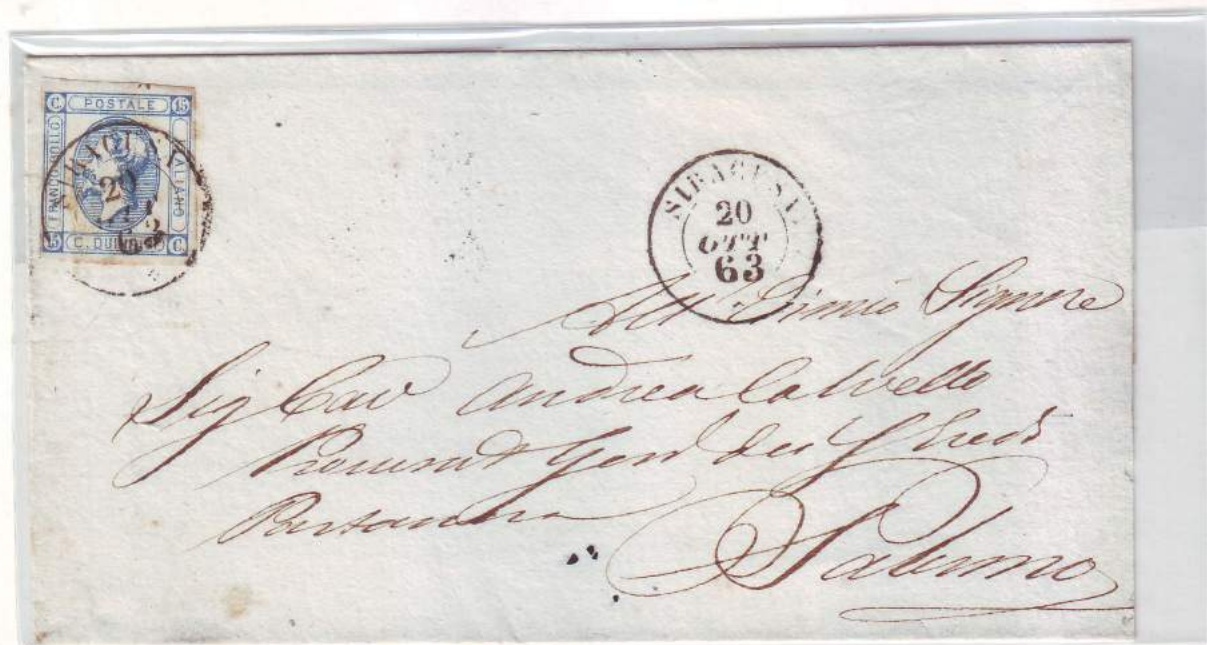 C. POSTALE 15
FRANCO BOLLO
ITALIANO
15 C. QUINDICI C.
SIRACUSA
20
OTT
63
SIRACUSA
20
OTT
63
Signore
Sig Cav Andrea Calvello
Gen
Palermo